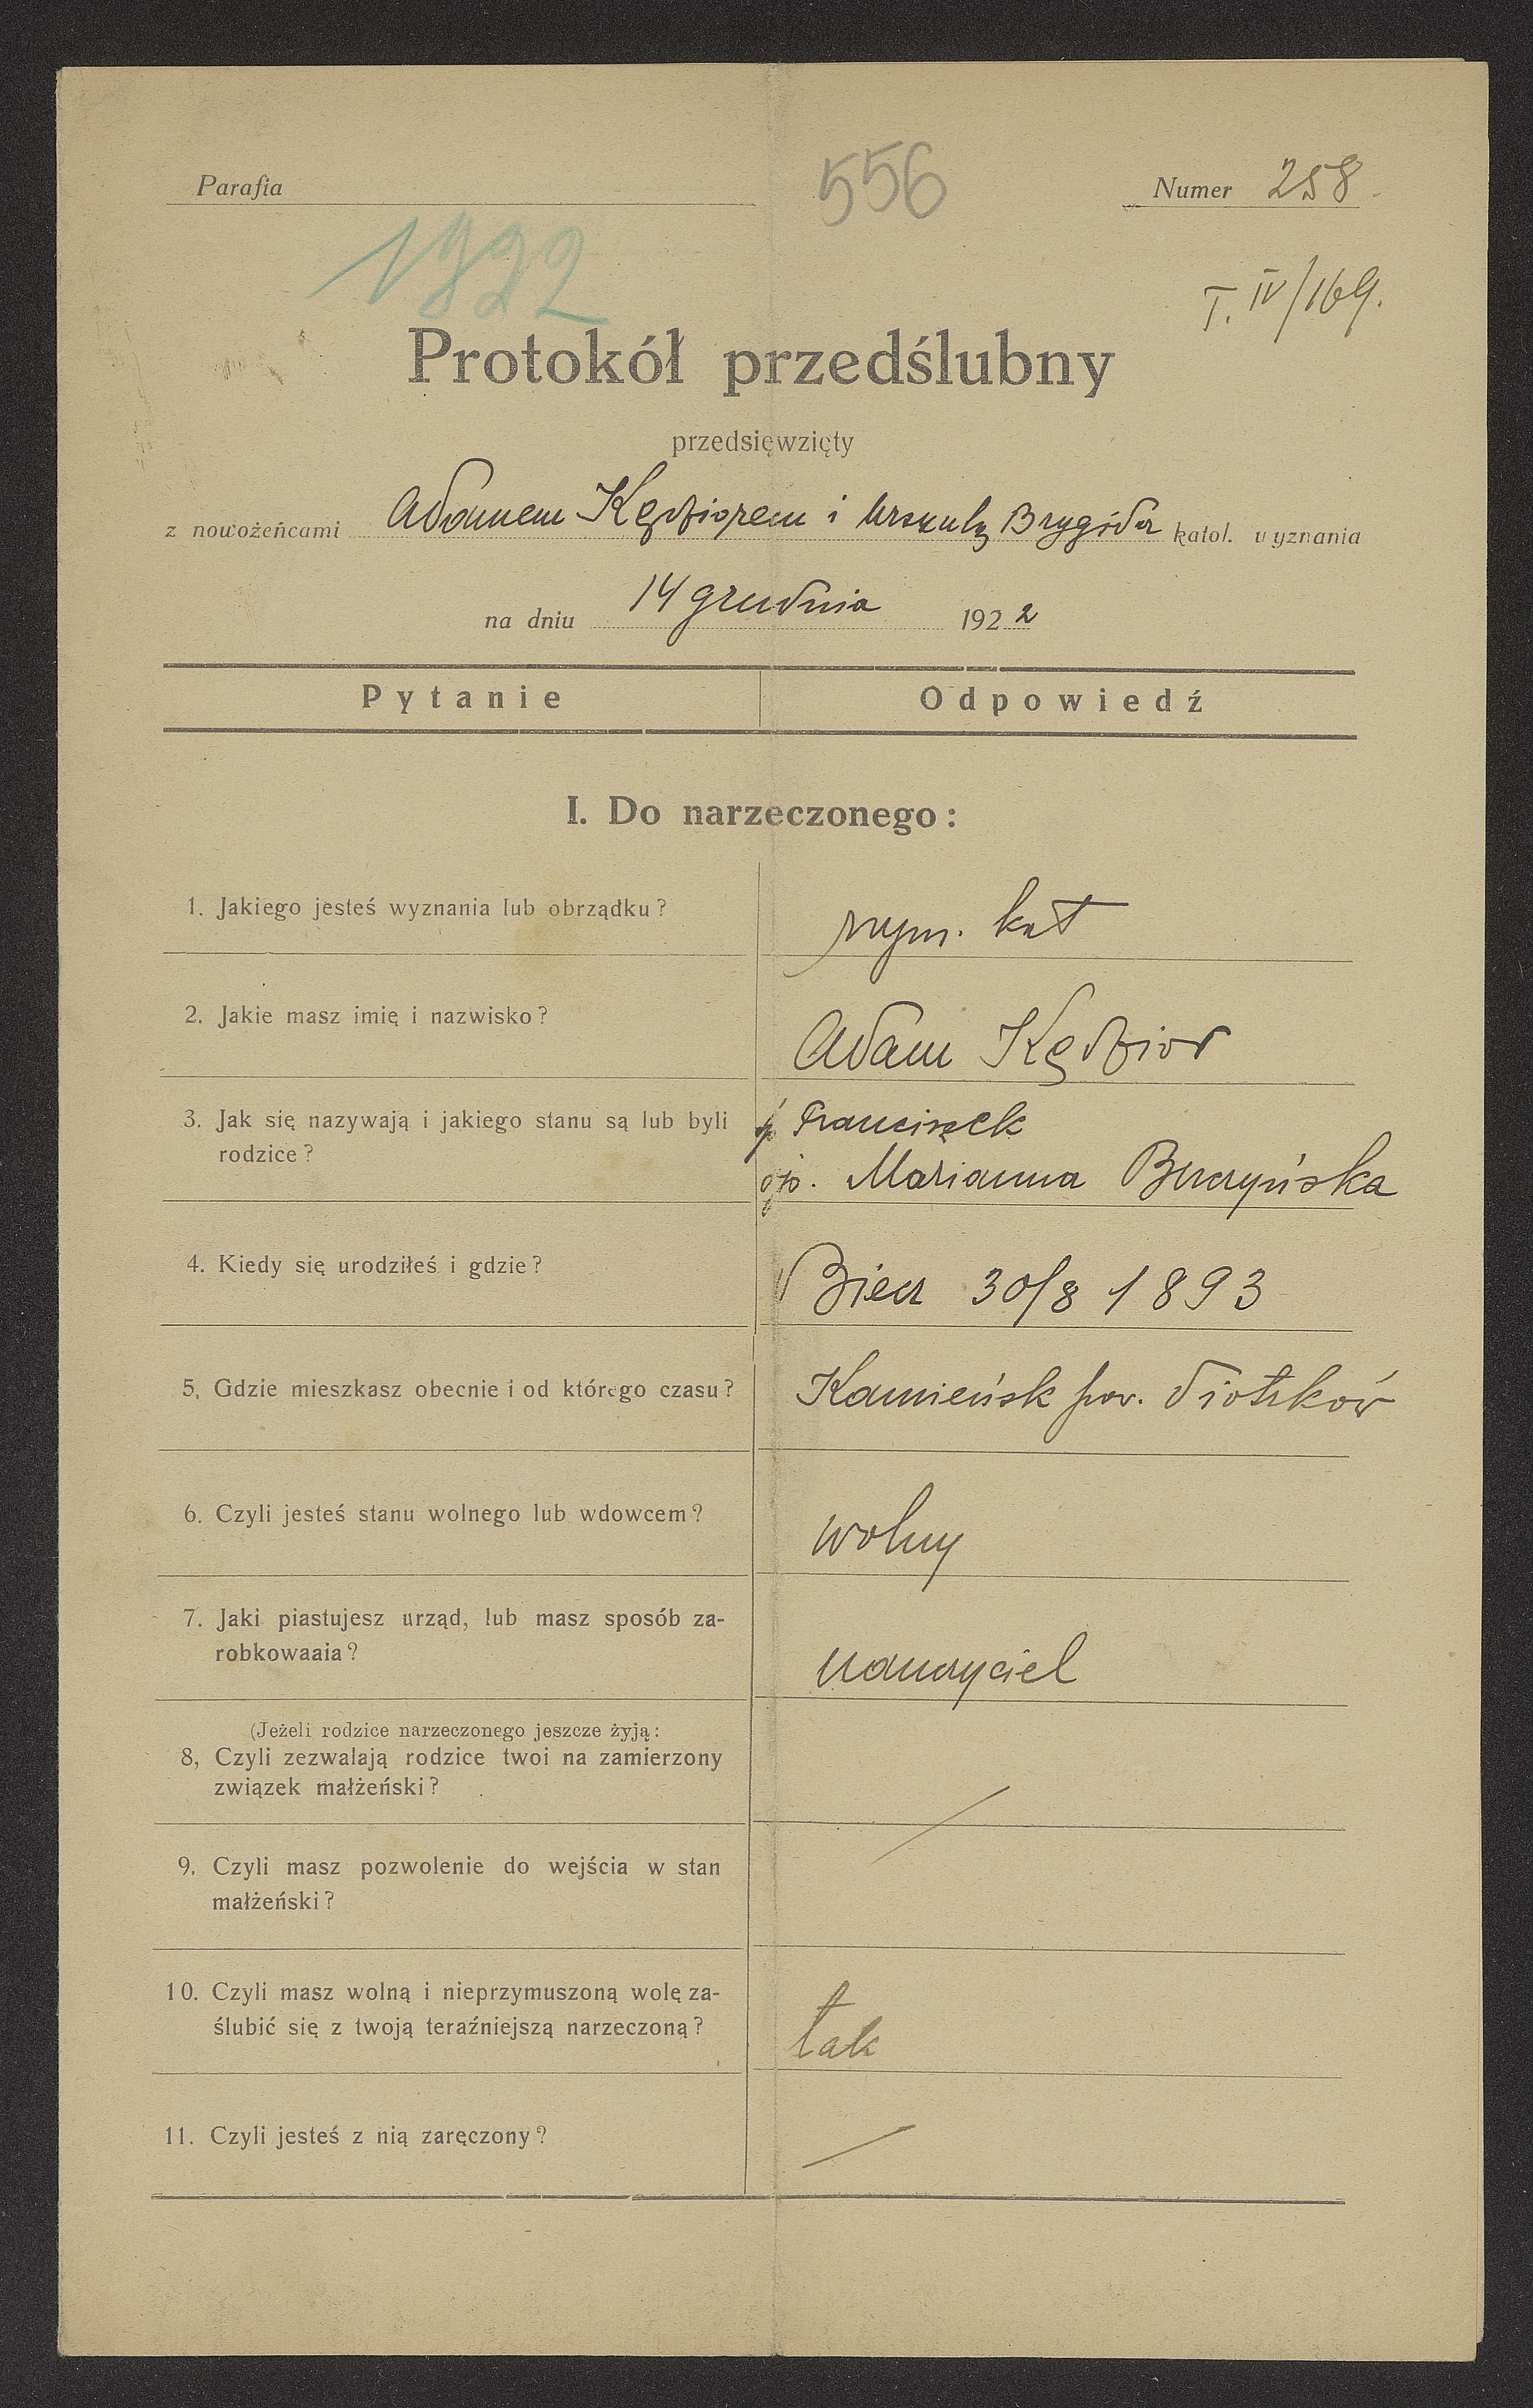 Parafia
556
Numer 258.
1922
T. IV/169.
Protokół przedślubny
przedsięwzięty
z nowożeńcami Adamem Kędziorem i Urszulą Brygidą katol. wyznania
na dniu 14 grudnia 1922
Pytanie Odpowiedź
I. Do narzeczonego:
1. Jakiego jesteś wyznania lub obrządku? rzym. kat
2. Jakie masz imię i nazwisko? Adam Kędzior
3. Jak się nazywają i jakiego stanu są lub byli
rodzice?
ś p Franciszek
ś p. Marianna
4. Kiedy się urodziłeś i gdzie? Biecz 30/8 1893
5, Gdzie mieszkasz obecnie i od którego czasu? Kamieńsk pow. Piotrków
6. Czyli jesteś stanu wolnego lub wdowcem? wolny
7. Jaki piastujesz urząd, lub masz sposób za-
robkowaaia?
nauczyciel
(Jeżeli rodzice narzeczonego jeszcze żyją:
8, Czyli zezwalają rodzice twoi na zamierzony
związek małżeński?
9. Czyli masz pozwolenie do wejścia w stan
małżeński?
10. Czyli masz wolną i nieprzymuszoną wolę za-
ślubić się z twoją teraźniejszą narzeczoną?
tak
11. Czyli jesteś z nią zaręczony?